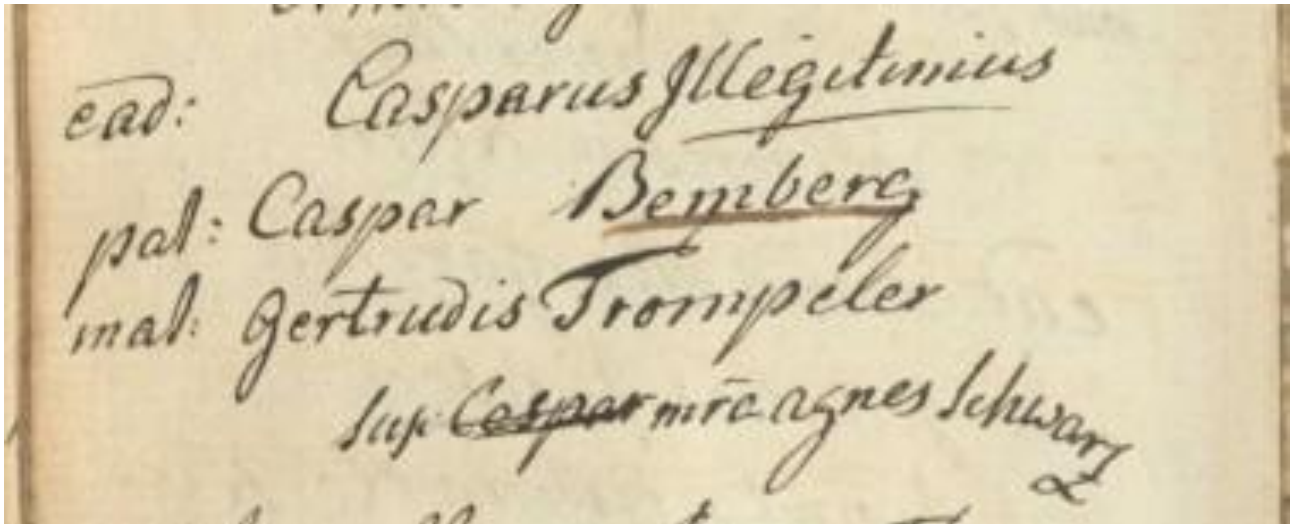 ead: Casparus Illegitimius
pat: Caspar Bemberg
mat: Gertrudis Trompeter
sus: Caspar mra agnes Schwarz